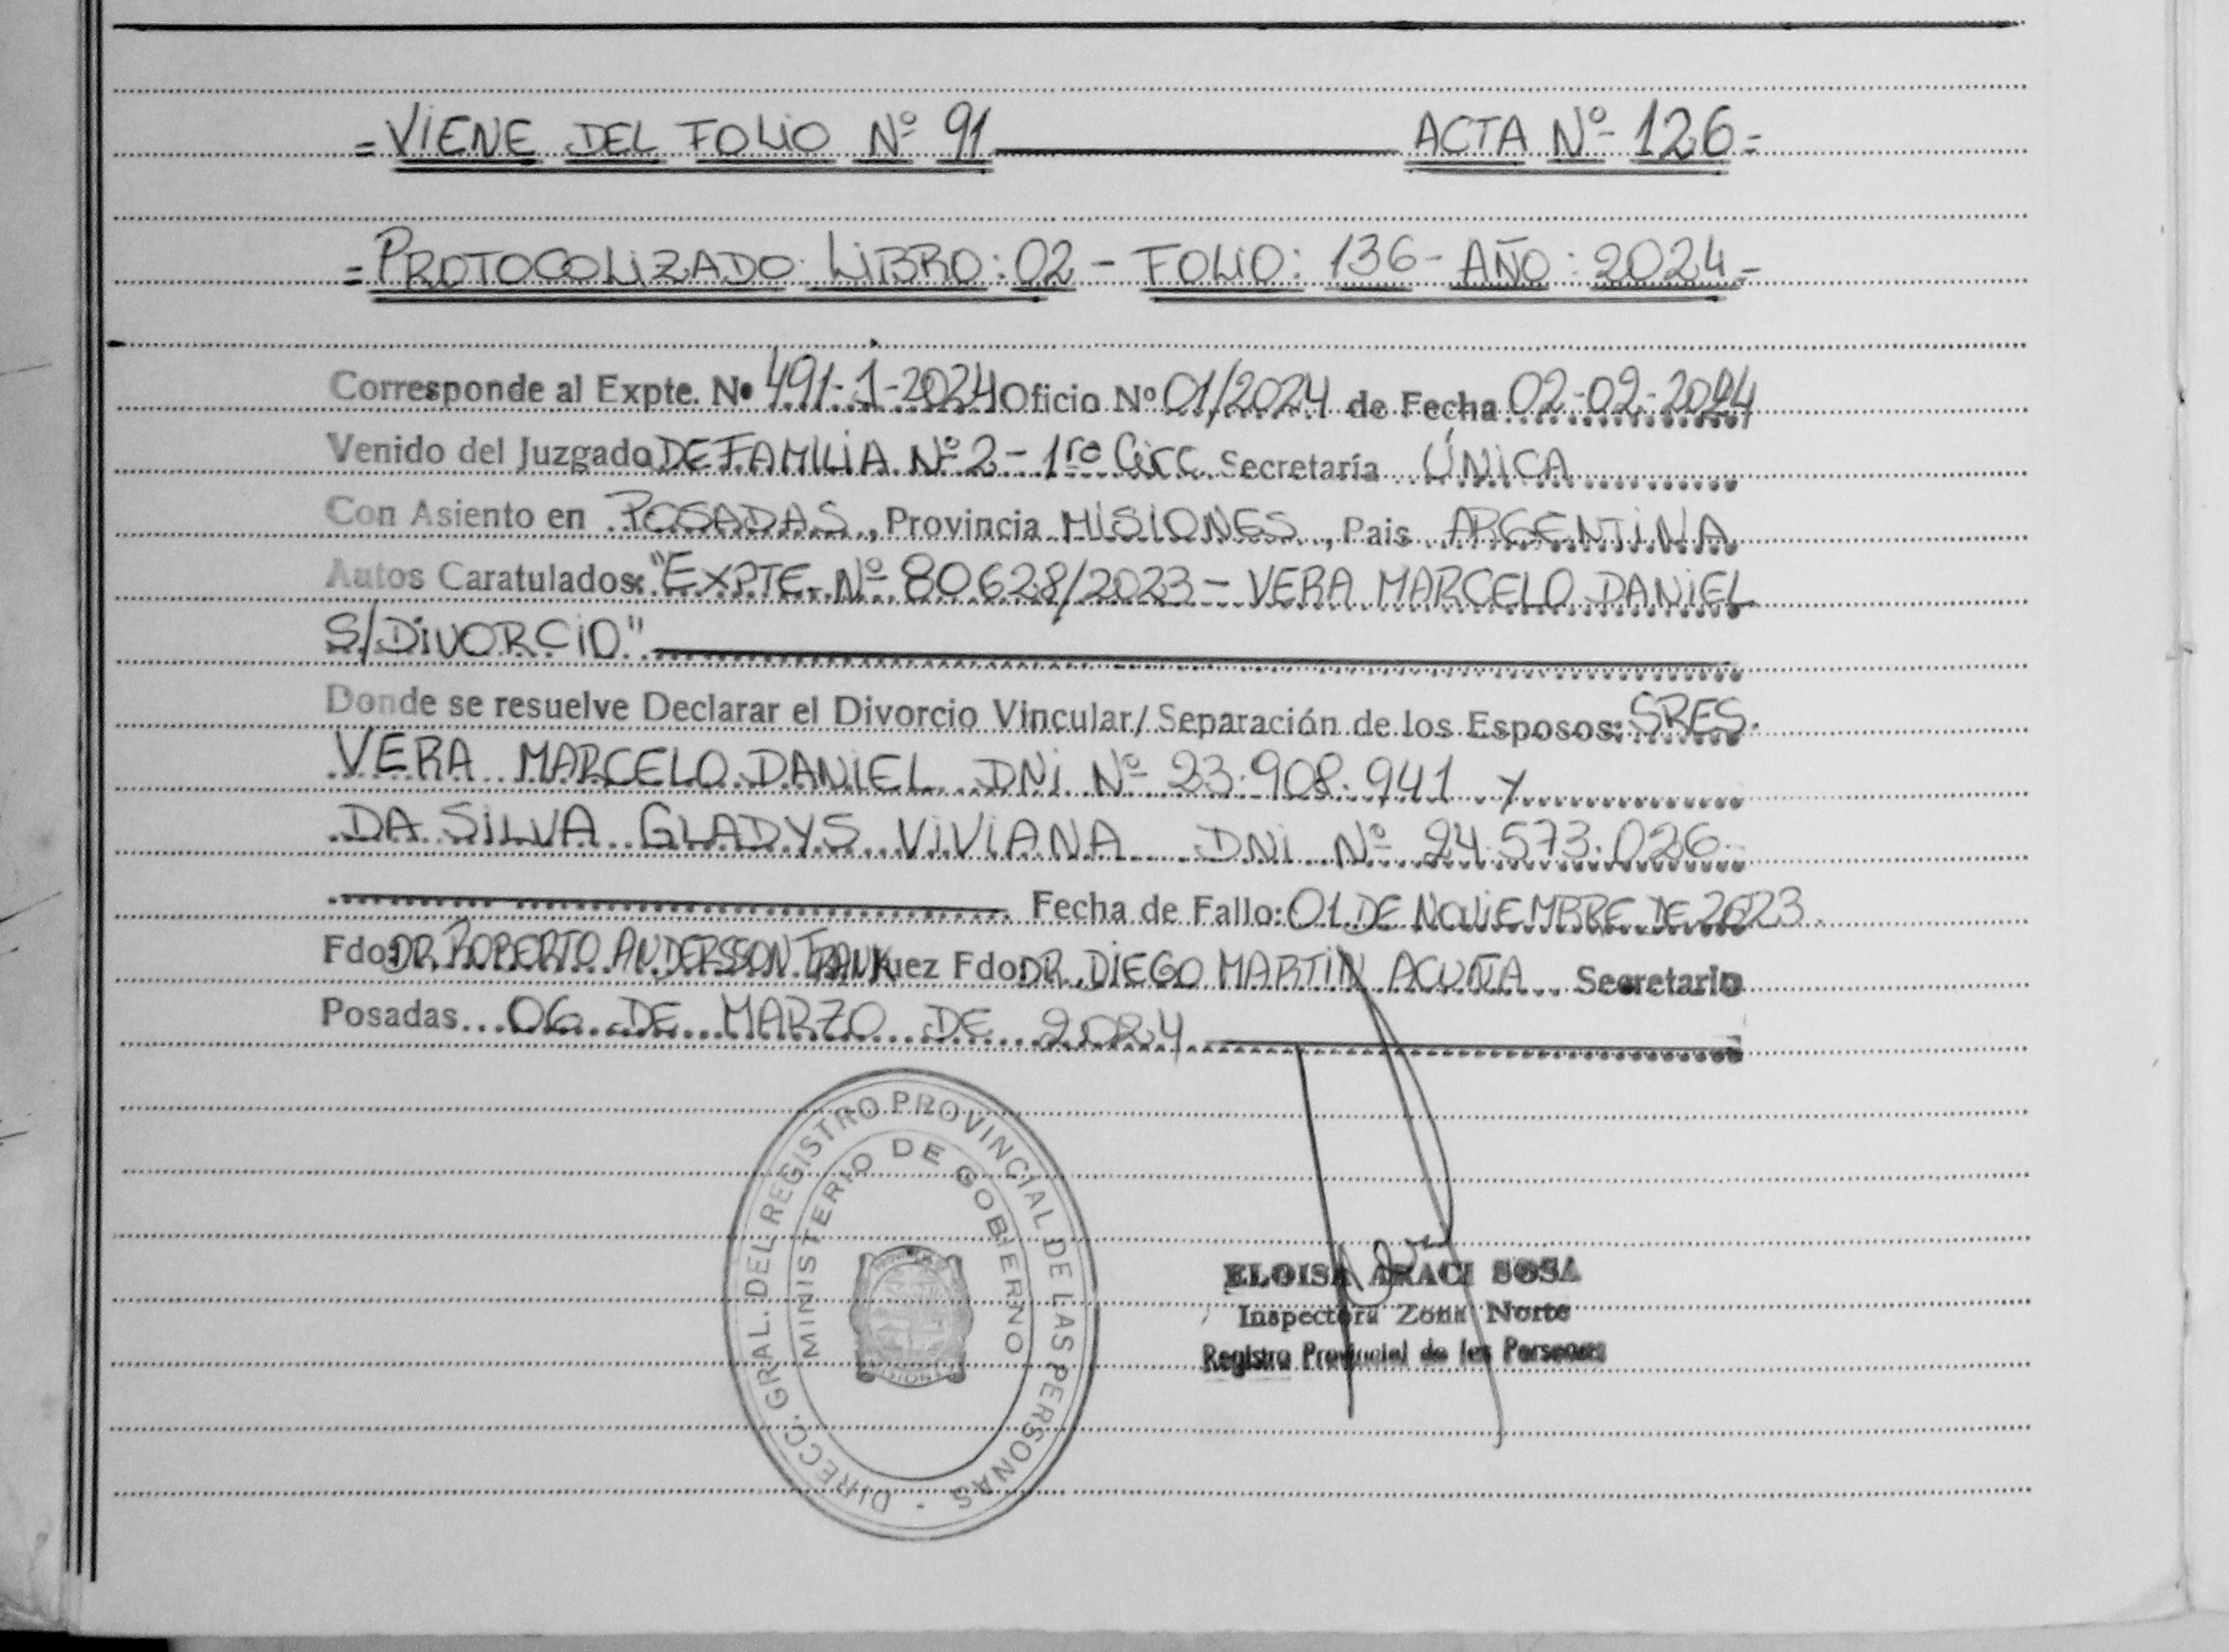 =VIENE DEL FOLIO Nº 91 ACTA Nº 126=
=PROTOCOLIZADO LIBRO: 02 - FOLIO: 136 - AÑO: 2024=
Corresponde al Expte. Nº 491-1-2024 Oficio Nº 01/2024 de Fecha 02-02-2024
Venido del Juzgado DE FAMILIA Nº 2 - 1ra Circ. Secretaría ÚNICA
Con Asiento en POSADAS, Provincia MISIONES, Pais ARGENTINA
Autos Caratulados: "EXPTE. Nº 80628/2023 - VERA MARCELO DANIEL
S/DIVORCIO"
Donde se resuelve Declarar el Divorcio Vincular/ Separación de los Esposos: SRES.
VERA MARCELO DANIEL DNI Nº 23.908.941 y
DA SILVA GLADYS VIVIANA DNI Nº 24.573.026
Fecha de Fallo: 01 DE NOVIEMBRE DE 2023.
Fdo: DR. ROBERTO ANDERSSON FRANK Juez Fdo: DR. DIEGO MARTIN ACUÑA Secretario
Posadas 06 DE MARZO DE 2024
DIRECC. GRAL. DEL REGISTRO PROVINCIAL DE LAS PERSONAS -
MINISTERIO DE GOBIERNO
MISIONES
ELOISA ARACI SOSA
Inspectora Zona Norte
Registro Provincial de las Personas